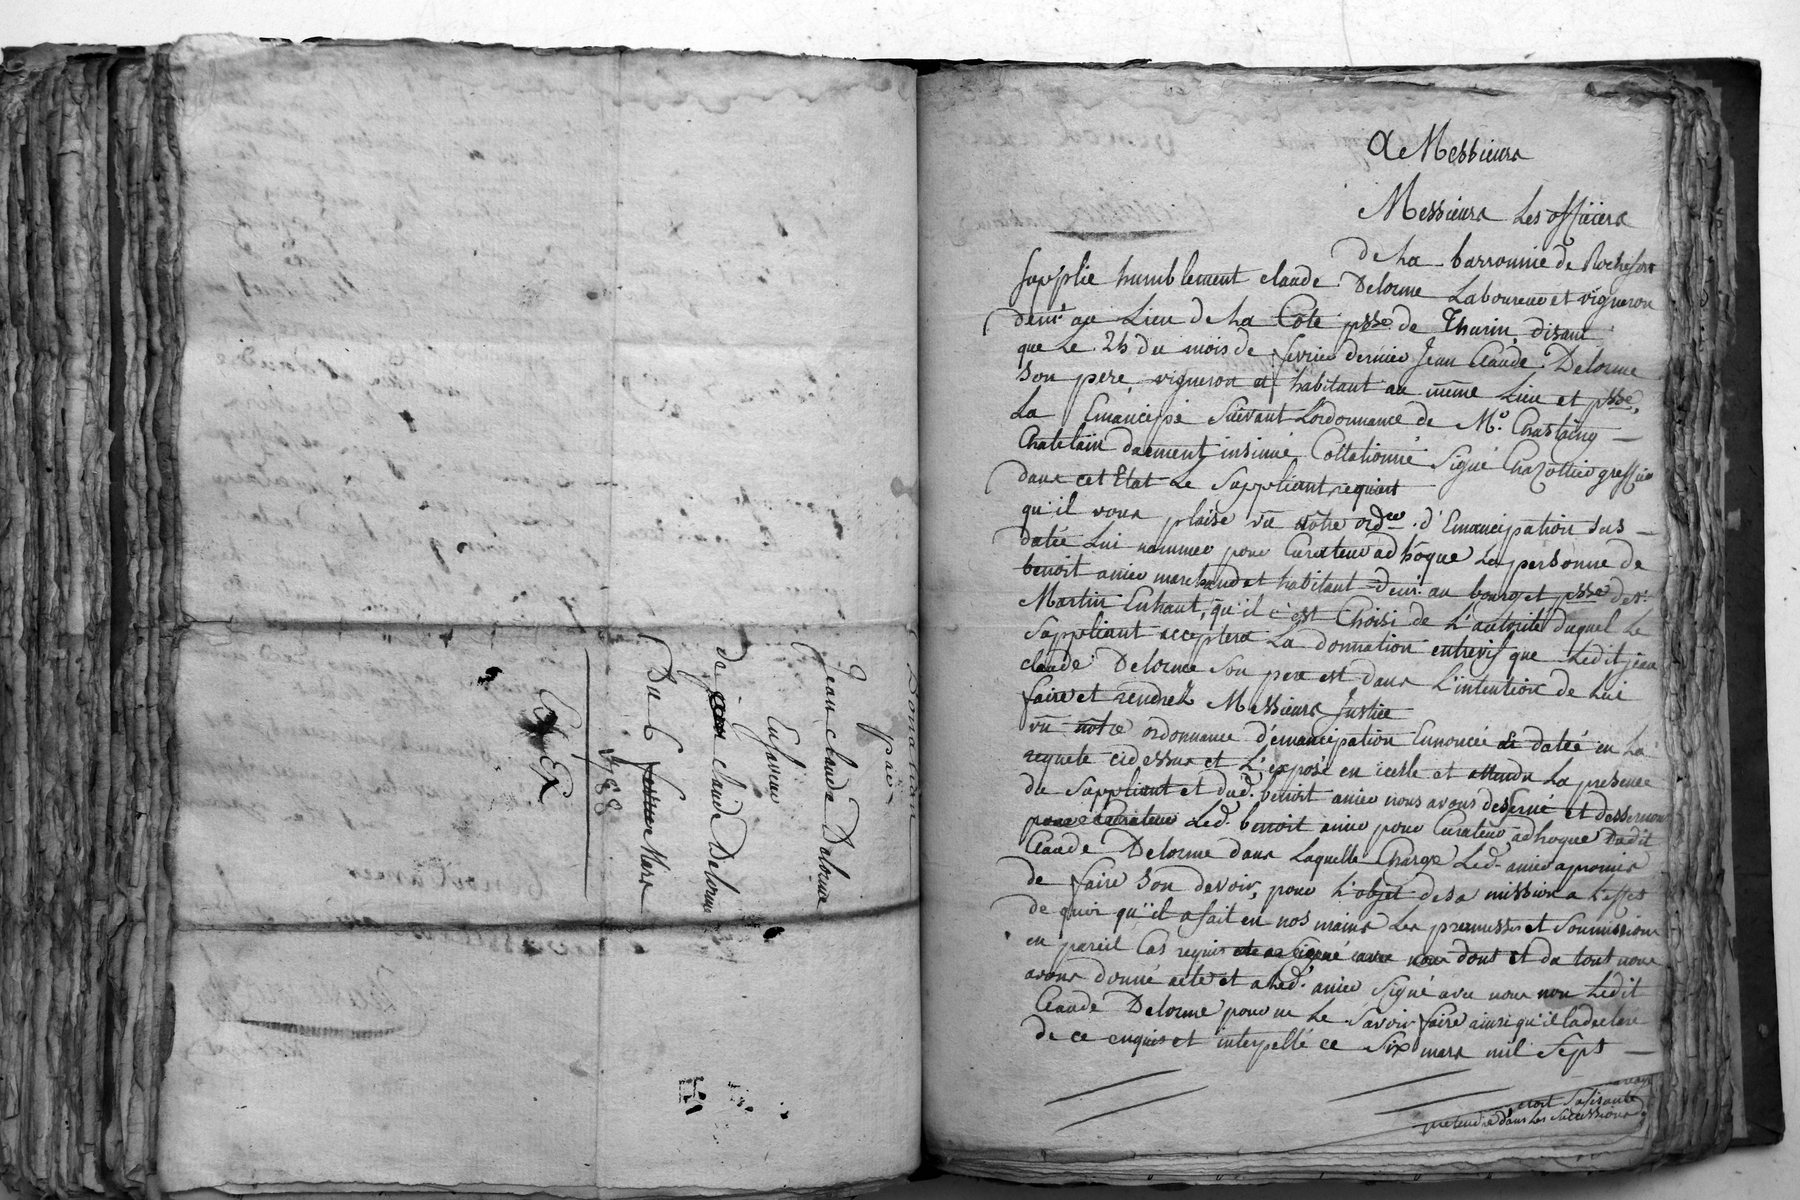 Donation
par
Jean claude Delorme
En faveur
de claude Delorme
Du 6 Mars
1788
Ex
A Messieurs
Messieurs Les officiers
de La barronnie de Rochefort
supplie humblement claude Delorme Laboureur et vigneron
demt au Lieu de La Côte psse de Thurin, disant
que Le 25 du mois de fevrier dernier Jean Claude Delorme
son pere, vigneron et habitant au même Lieu et psse,
La Emancipé suivant L'ordonnance de Me. Chastaing
Chatelain duement insinué Collationné signé Chazottier greffier
dans cet Etat Le Suppliant requiert
qu'il vous plaise vu nôtre ordce. d'Emancipation sus
datée Lui nommer pour Curateur ad hoque La personne de
benoit anier marchand et habitant demt. au bourg et psse de St.
Martin Enhaut, qu'il c'est Choisi de L'autorité duquel Le
Suppliant acceptera La donnation entrevif que Ledit jean
claude Delorme son pere est dans L'intention de Lui
faire et rendrez Messieurs Justice
vu notre ordonnance d'emancipation Ennoncée et datée en La
requete cidessus et L'exposé en icelle et attendu La presence
du Suppliant et dud. benoit anier nous avons desserné et dessernons
pour Curateur Led. benoit anier pour Curateur adhoque dudit
Claude Delorme dans Laquelle Charge Led. anier a promis
de faire son devoir, pour L'objet de sa mission a L'effet
de quoi qu'il a fait en nos mains Les promesses et Soumissions
en pareil Cas requis dont et du tout nous
avons donné acte et a Led. anier signé avec nous non Ledit
Claude Delorme pour ne Le savoir faire ainsi qu'il La declaré
de ce enquis et interpellé ce six mars mil sept
pretendre dans Les successions